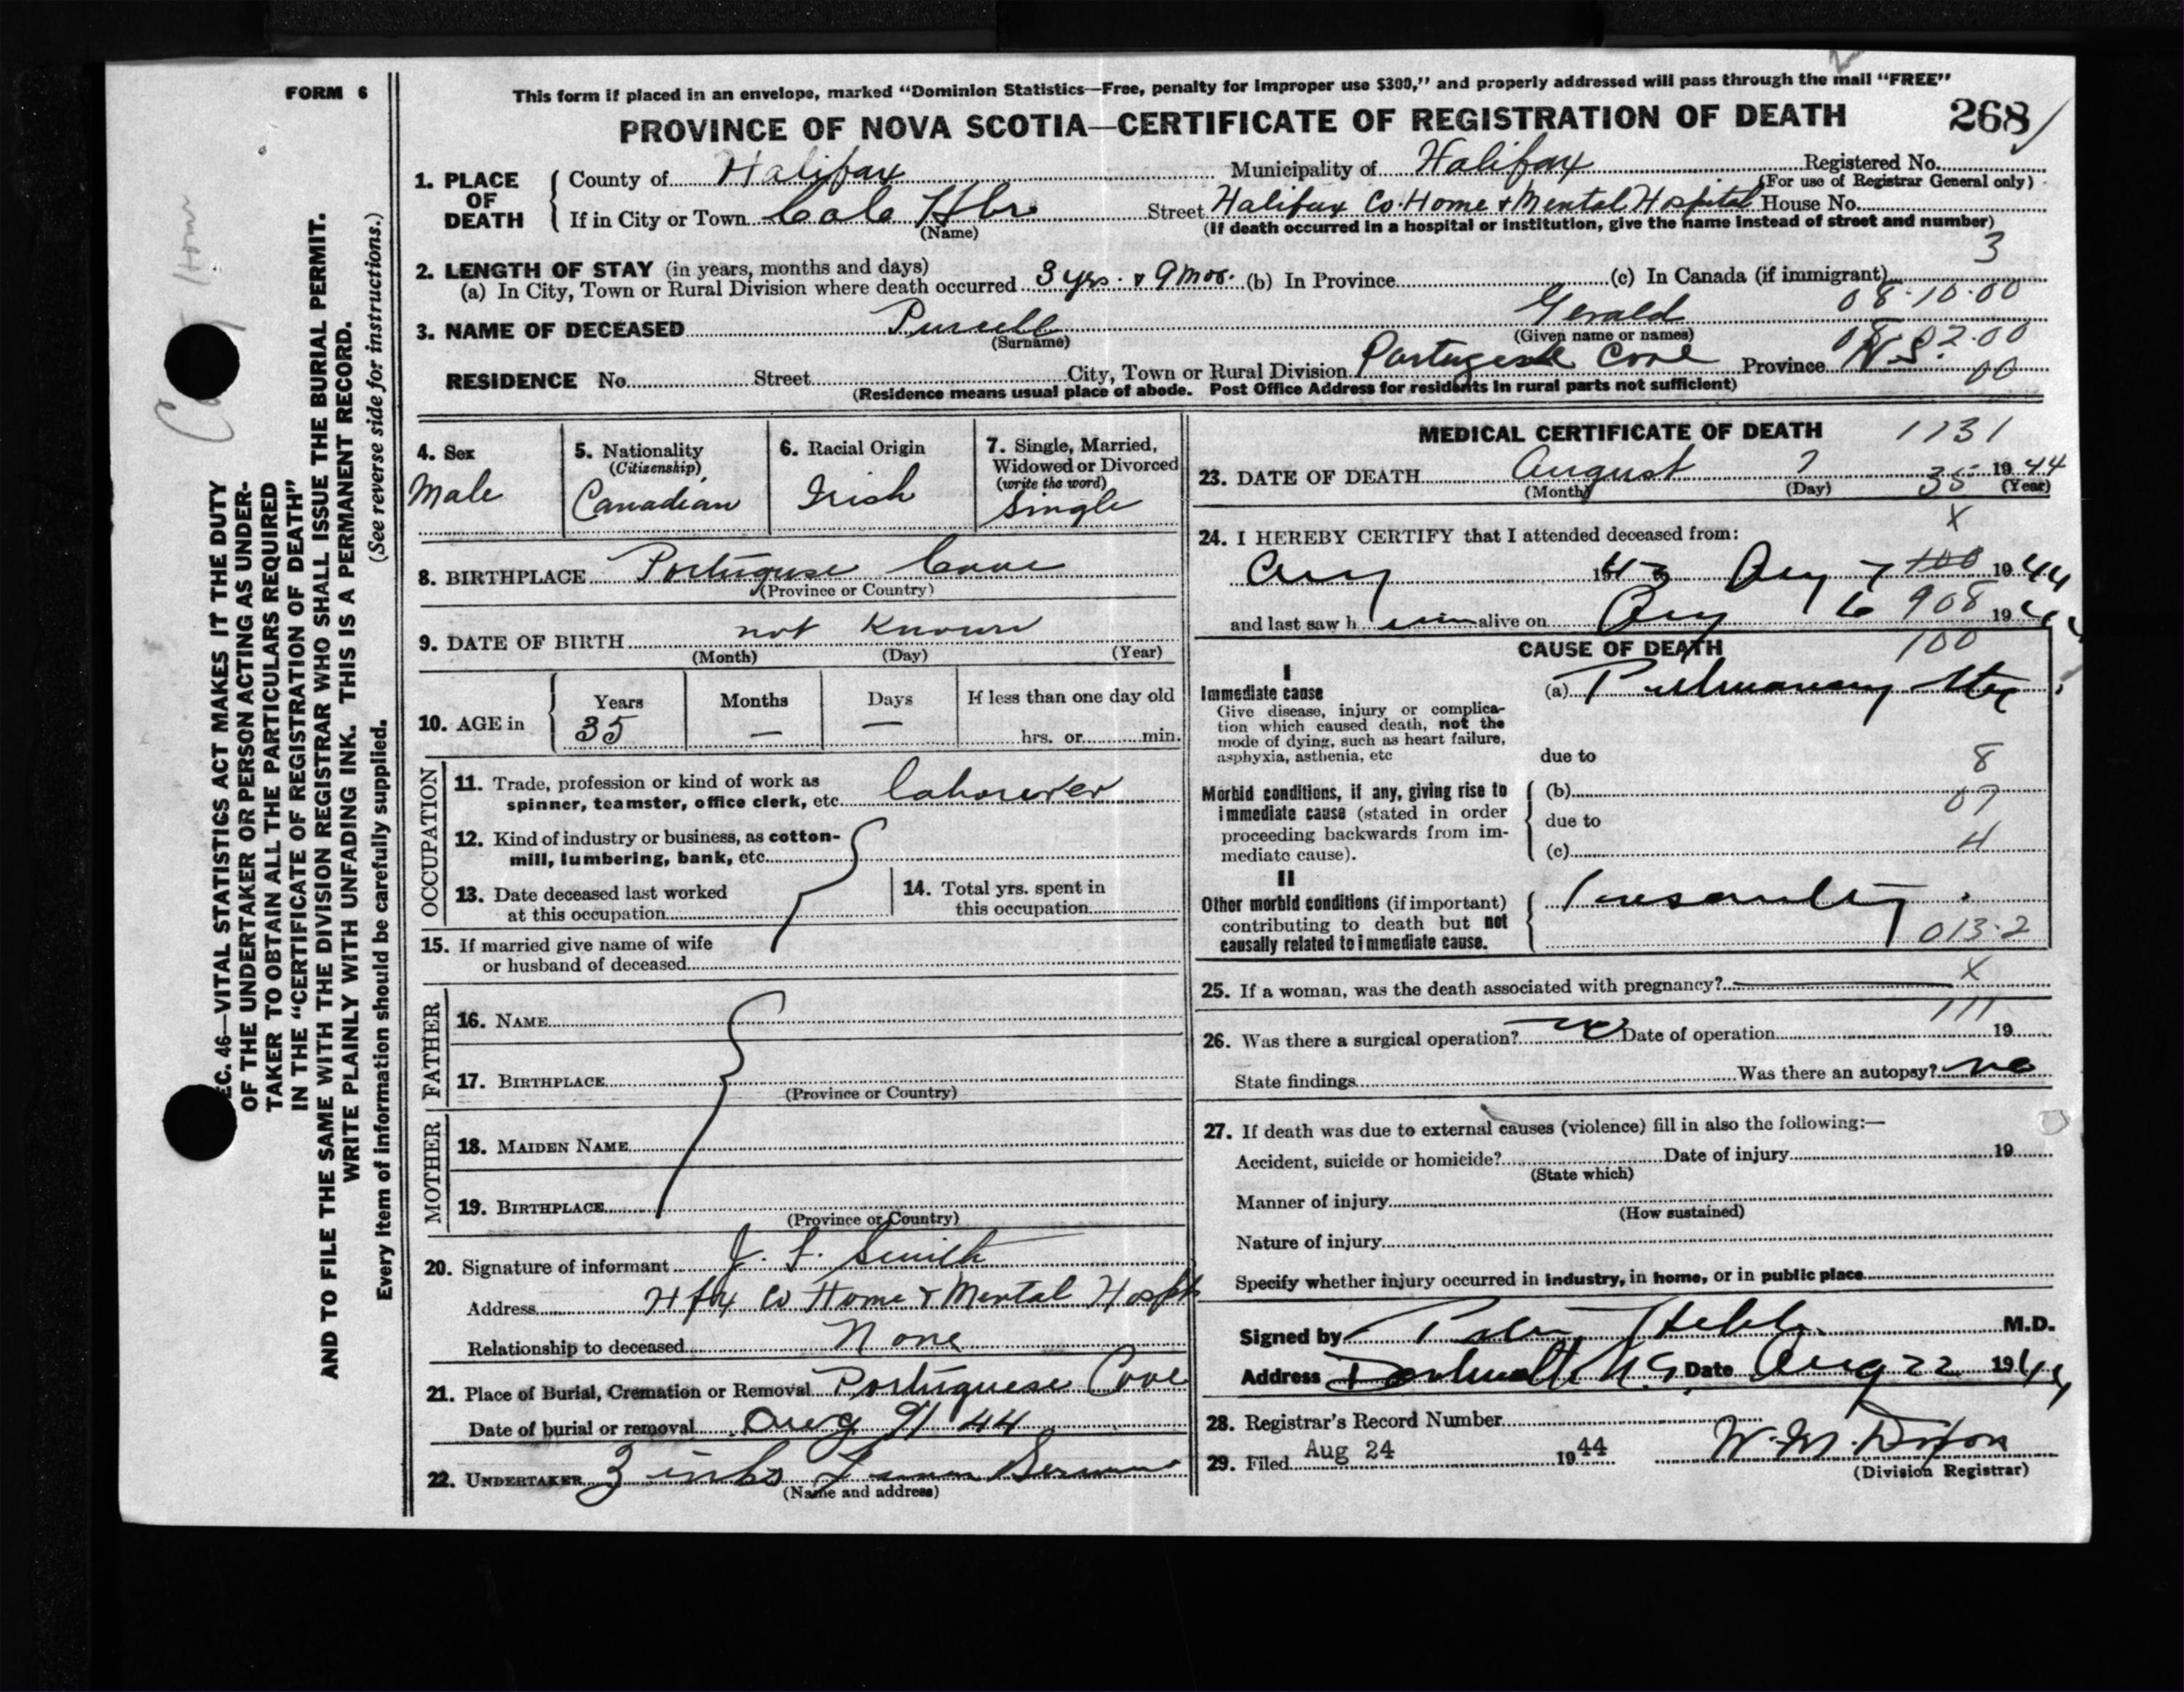 FORM 6
This form if placed in an envelope, marked "Dominion Statistics—Free, penalty for improper use $300," and properly addressed will pass through the mail "FREE"
PROVINCE OF NOVA SCOTIA—CERTIFICATE OF REGISTRATION OF DEATH
268
1. PLACE OF DEATH
County of Halifax Municipality of Halifax Registered No.
(For use of Registrar General only)
If in City or Town Cole Hbr Street Halifax Co. Home & Mental Hospital House No.
(Name) (If death occurred in a hospital or institution, give the name instead of street and number)
3
2. LENGTH OF STAY (in years, months and days)
(a) In City, Town or Rural Division where death occurred 3 yrs. & 9 mos. (b) In Province (c) In Canada (if immigrant)
08·10·00
3. NAME OF DECEASED Purcell Gerald
(Surname) (Given name or names)
02·00
RESIDENCE No. Street City, Town or Rural Division Cove Province N.S. 00
(Residence means usual place of abode. Post Office Address for residents in rural parts not sufficient)
4. Sex
Male
5. Nationality
(Citizenship)
Canadian
6. Racial Origin
Irish
7. Single, Married,
Widowed or Divorced
(write the word)
Single
8. BIRTHPLACE Portuguese Cove
(Province or Country)
9. DATE OF BIRTH not Known
(Month) (Day) (Year)
10. AGE in
Years Months Days If less than one day old
35 — — hrs. or min.
OCCUPATION
11. Trade, profession or kind of work as
spinner, teamster, office clerk, etc. labourer
12. Kind of industry or business, as cotton-
mill, lumbering, bank, etc.
13. Date deceased last worked
at this occupation
14. Total yrs. spent in
this occupation
15. If married give name of wife
or husband of deceased
FATHER
16. NAME
17. BIRTHPLACE
(Province or Country)
MOTHER
18. MAIDEN NAME
19. BIRTHPLACE
(Province or Country)
20. Signature of informant J. F. Smith
Address Hfx Co Home & Mental Hospt
Relationship to deceased None
21. Place of Burial, Cremation or Removal Portuguese Cove
Date of burial or removal Aug 9/44
22. UNDERTAKER
(Name and address)
MEDICAL CERTIFICATE OF DEATH 1131
23. DATE OF DEATH August 7 1944
(Month) (Day) 35 (Year)
x
24. I HEREBY CERTIFY that I attended deceased from:
Aug 1943 Aug 7 100 1944
and last saw h im alive on Aug 6 908 1944
CAUSE OF DEATH 100
I
Immediate cause
Give disease, injury or complica-
tion which caused death, not the
mode of dying, such as heart failure,
asphyxia, asthenia, etc
(a) Pulmonary
due to
8
Morbid conditions, if any, giving rise to
immediate cause (stated in order
proceeding backwards from im-
mediate cause).
(b)
07
due to
(c) 4
II
Other morbid conditions (if important)
contributing to death but not
causally related to immediate cause.
Insanity
013·2
x
25. If a woman, was the death associated with pregnancy?
111
26. Was there a surgical operation? no Date of operation 19
State findings Was there an autopsy? no
27. If death was due to external causes (violence) fill in also the following:—
Accident, suicide or homicide? Date of injury 19
(State which)
Manner of injury
(How sustained)
Nature of injury
Specify whether injury occurred in industry, in home, or in public place
Signed by Hebb M.D.
Address Dartmouth N.S. Date Aug 22 1944
28. Registrar's Record Number
29. Filed Aug 24 1944 W. M.
(Division Registrar)
SEC. 46—VITAL STATISTICS ACT MAKES IT THE DUTY
OF THE UNDERTAKER OR PERSON ACTING AS UNDER-
TAKER TO OBTAIN ALL THE PARTICULARS REQUIRED
IN THE "CERTIFICATE OF REGISTRATION OF DEATH"
AND TO FILE THE SAME WITH THE DIVISION REGISTRAR WHO SHALL ISSUE THE BURIAL PERMIT.
WRITE PLAINLY WITH UNFADING INK. THIS IS A PERMANENT RECORD.
Every item of information should be carefully supplied. (See reverse side for instructions.)